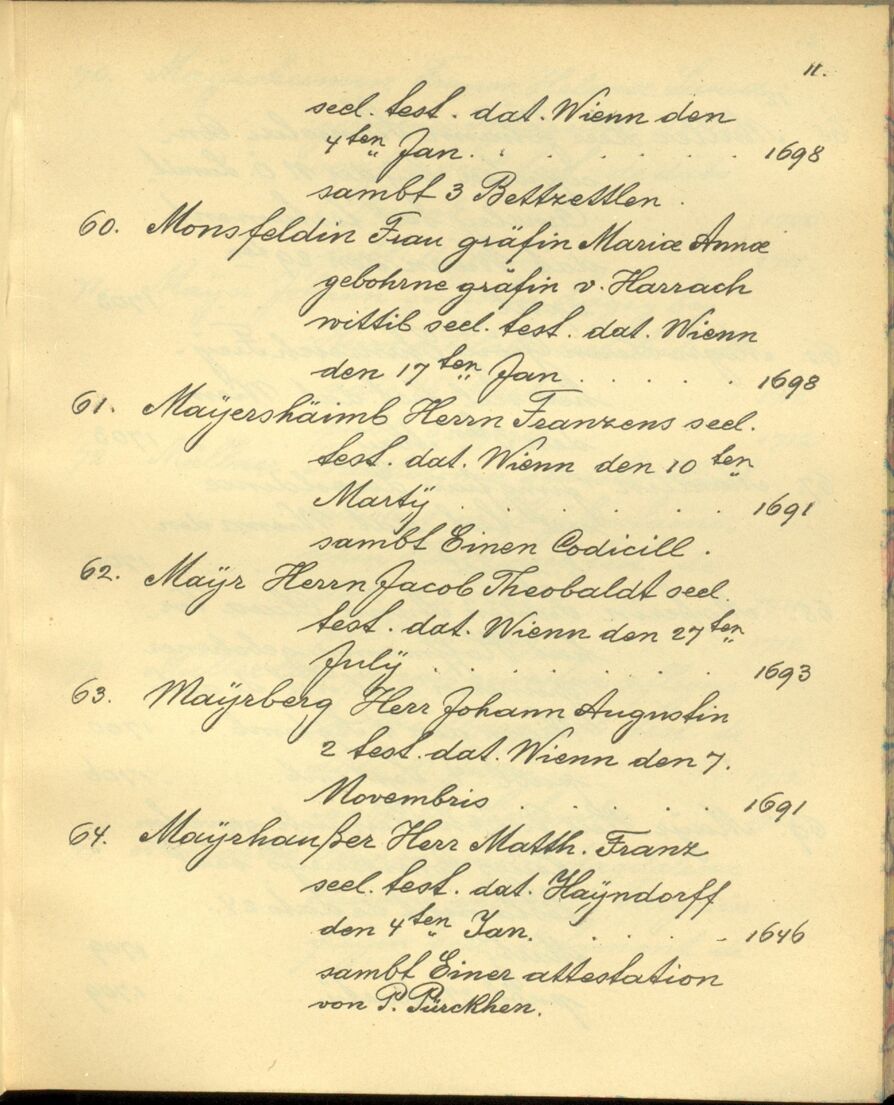 11.
seel. test. dat. Wienn den
4ten Jan. . . . . . . . 1698
sambt 3 Bettzettlen.
60. Monsfeldin Frau gräfin Mariæ Annæ
gebohrne gräfin v. Harrach
wittib seel. test. dat. Wienn
den 17ten Jan. . . . . . 1698
61. Maÿershäimb Herrn Franzens seel.
test. dat. Wienn den 10ten
Martÿ . . . . . . . 1691
sambt Einen Codicill.
62. Maÿr Herrn Jacob Theobaldt seel.
test. dat. Wienn den 27ten
Julÿ . . . . . . . 1693
63. Maÿrberg Herr Johann Augustin
2 test. dat. Wienn den 7.
Novembris . . . . . . 1691
64. Maÿrhaußer Herr Matth. Franz
seel. test. dat. Haÿndorff
den 4ten Jan. . . . . . 1646
sambt Einer attestation
von P. Pürckhen.